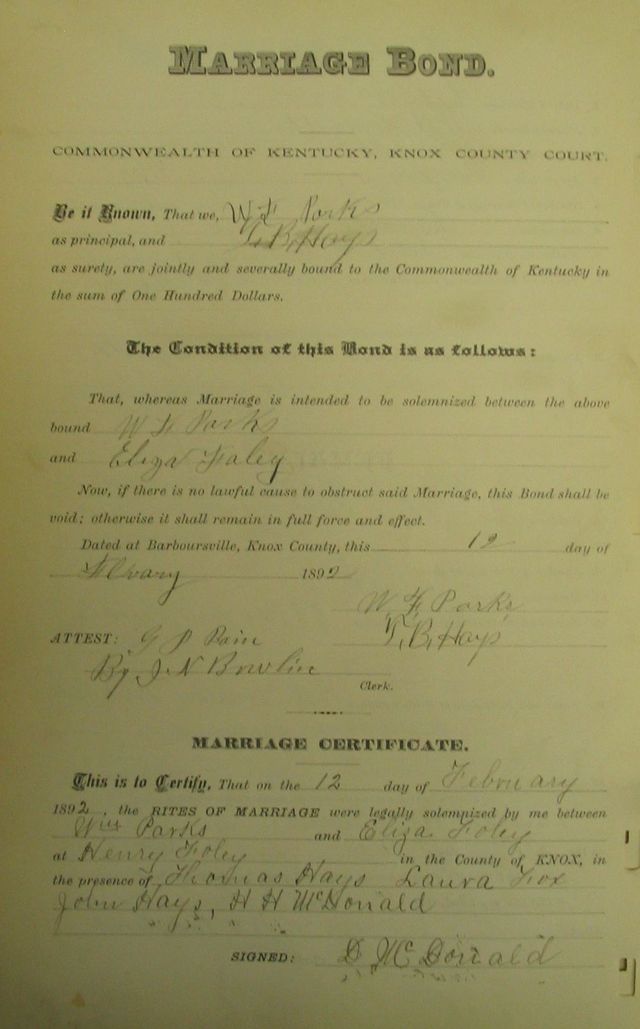 MARRIAGE BOND.
COMMONWEALTH OF KENTUCKY, KNOX COUNTY COURT.
Be it Known, That we, W F Parks
as principal, and T. B. Hays
as surety, are jointly and severally bound to the Commonwealth of Kentucky in
the sum of One Hundred Dollars.
The Condition of this Bond is as follows:
That, whereas Marriage is intended to be solemnized between the above
bound W F Parks
and Eliza Foley
Now, if there is no lawful cause to obstruct said Marriage, this Bond shall be
void; otherwise it shall remain in full force and effect.
Dated at Barboursville, Knox County, this 12 day of
1892
W. F. Parks
ATTEST: G P Bain T. B. Hays
By J. N Bowlin
Clerk.
MARRIAGE CERTIFICATE.
This is to Certify, That on the 12 day of February
1892, the RITES OF MARRIAGE were legally solemnized by me between
Wm Parks and Eliza Foley
at Henry Foley in the County of KNOX, in
the presence of Thomas Hays Laura Fox
John Hays, H H McDonald
SIGNED: D McDonald